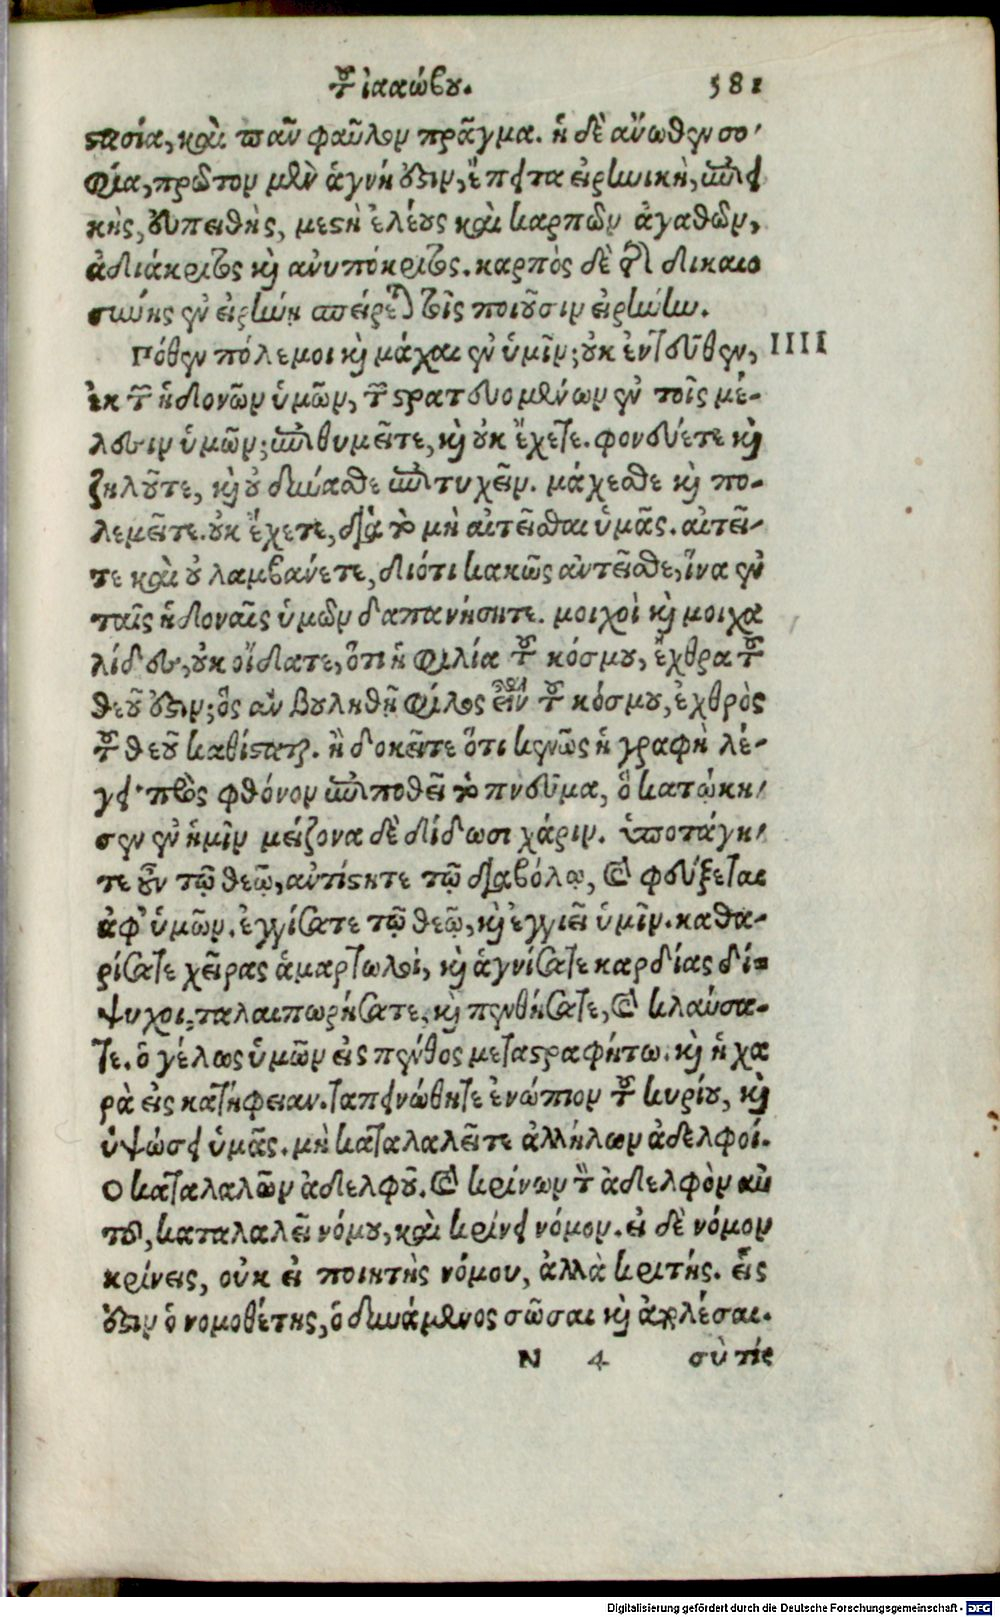 τοῦ ἰακώβου. 581
στασία, καὶ πᾶν φαῦλον πρᾶγμα. ἡ δὲ ἄνωθεν σο-
φία, πρῶτον μὲν ἁγνή ἐστιν, ἔπειτα εἰρηνικὴ, ἐπιει
κὴς, εὐπειθὴς, μεστὴ ἐλέους καὶ καρπῶν ἀγαθῶν,
ἀδιάκριτος καὶ ἀνυπόκριτος. καρπὸς δὲ τῆς δικαιο
σύνης ἐν εἰρήνῃ σπείρεται τοῖς ποιοῦσιν εἰρήνην.
Πόθεν πόλεμοι καὶ μάχαι ἐν ὑμῖν; οὐκ ἐντεῦθεν, IIII
ἐκ τῶν ἡδονῶν ὑμῶν, τῶν στρατευομένων ἐν τοῖς μέ-
λεσιν ὑμῶν; ἐπιθυμεῖτε, καὶ οὐκ ἔχετε. φονεύετε καὶ
ζηλοῦτε, καὶ οὐ δύνασθε ἐπιτυχεῖν. μάχεσθε καὶ πο-
λεμεῖτε. οὐκ ἔχετε, διὰ τὸ μὴ αἰτεῖσθαι ὑμᾶς. αἰτεῖ-
τε καὶ οὐ λαμβάνετε, διότι κακῶς αἰτεῖσθε, ἵνα ἐν
ταῖς ἡδοναῖς ὑμῶν δαπανήσητε. μοιχοὶ καὶ μοιχα
λίδες, οὐκ οἴδατε, ὅτι ἡ φιλία τοῦ κόσμου, ἔχθρα τοῦ
θεοῦ ἐστιν; ὃς ἂν βουληθῇ φίλος εἶναι τοῦ κόσμου, ἐχθρὸς
τοῦ θεοῦ καθίσταται. ἢ δοκεῖτε ὅτι κενῶς ἡ γραφὴ λέ-
γει· πρὸς φθόνον ἐπιποθεῖ τὸ πνεῦμα, ὃ κατῴκη-
σεν ἐν ἡμῖν μείζονα δὲ δίδωσι χάριν. ὑποτάγη-
τε οὖν τῷ θεῷ, ἀντίστητε τῷ διαβόλῳ, καὶ φεύξεται
ἀφ' ὑμῶν. ἐγγίσατε τῷ θεῷ, καὶ ἐγγιεῖ ὑμῖν. καθα-
ρίσατε χεῖρας ἁμαρτωλοὶ, καὶ ἁγνίσατε καρδίας δί-
ψυχοι. ταλαιπωρήσατε, καὶ πενθήσατε, καὶ κλαύσα-
τε. ὁ γέλως ὑμῶν εἰς πένθος μεταστραφήτω. καὶ ἡ χα
ρὰ εἰς κατήφειαν. ταπεινώθητε ἐνώπιον τοῦ κυρίου, καὶ
ὑψώσει ὑμᾶς. μὴ καταλαλεῖτε ἀλλήλων ἀδελφοί.
Ο καταλαλῶν ἀδελφοῦ. καὶ κρίνων τὸν ἀδελφὸν αὐ
τοῦ, καταλαλεῖ νόμου, καὶ κρίνει νόμον. εἰ δὲ νόμον
κρίνεις, οὐκ εἶ ποιητὴς νόμου, ἀλλὰ κριτής. εἷς
ἐστιν ὁ νομοθέτης, ὁ δυνάμενος σῶσαι καὶ ἀπολέσαι.
N 4 σὺ τίς
Digitalisierung gefördert durch die Deutsche Forschungsgemeinschaft - DFG